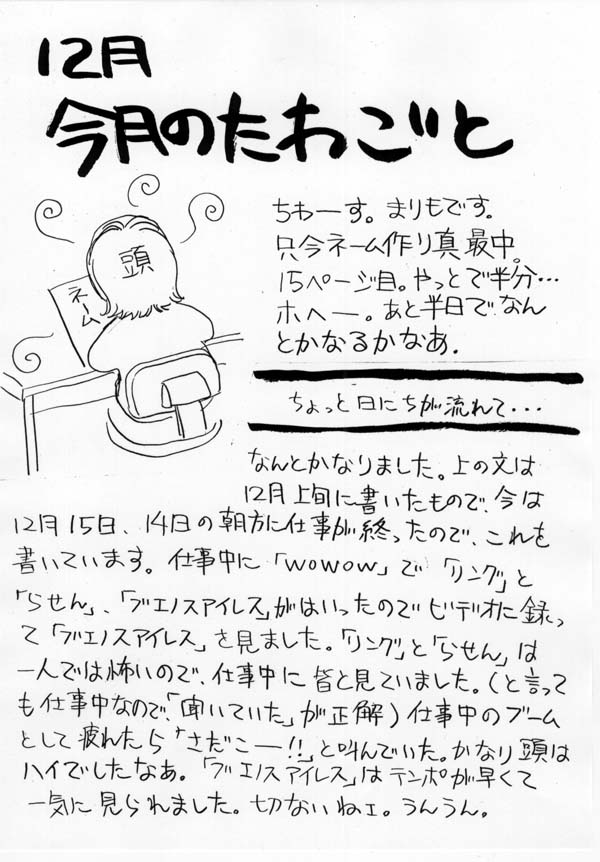 12月
今月のたわごと
頭
ネーム
ちわーす。まりもです。
只今ネーム作り真最中。
15ページ目。やっとで半分…
ホヘー。あと半日でなん
とかなるかなあ.
ちょっと日にちが流れて・・・
なんとかなりました。上の文は
12月上旬に書いたもので、今は
12月15日、14日の朝方に仕事が終ったので、これを
書いています。仕事中に「WOWOW」で「リング」と
「らせん」、「ブエノスアイレス」がはいったのでビデオに録っ
て「ブエノスアイレス」を見ました。「リング」と「らせん」は
一人では怖いので、仕事中に皆と見ていました。(と言って
も仕事中なので、「聞いていた」が正解)仕事中のブーム
として疲れたら「さだこー!!」と叫んでいた。かなり頭は
ハイでしたなあ。「ブエノスアイレス」はテンポが早くて
一気に見られました。切ないねェ。うんうん。